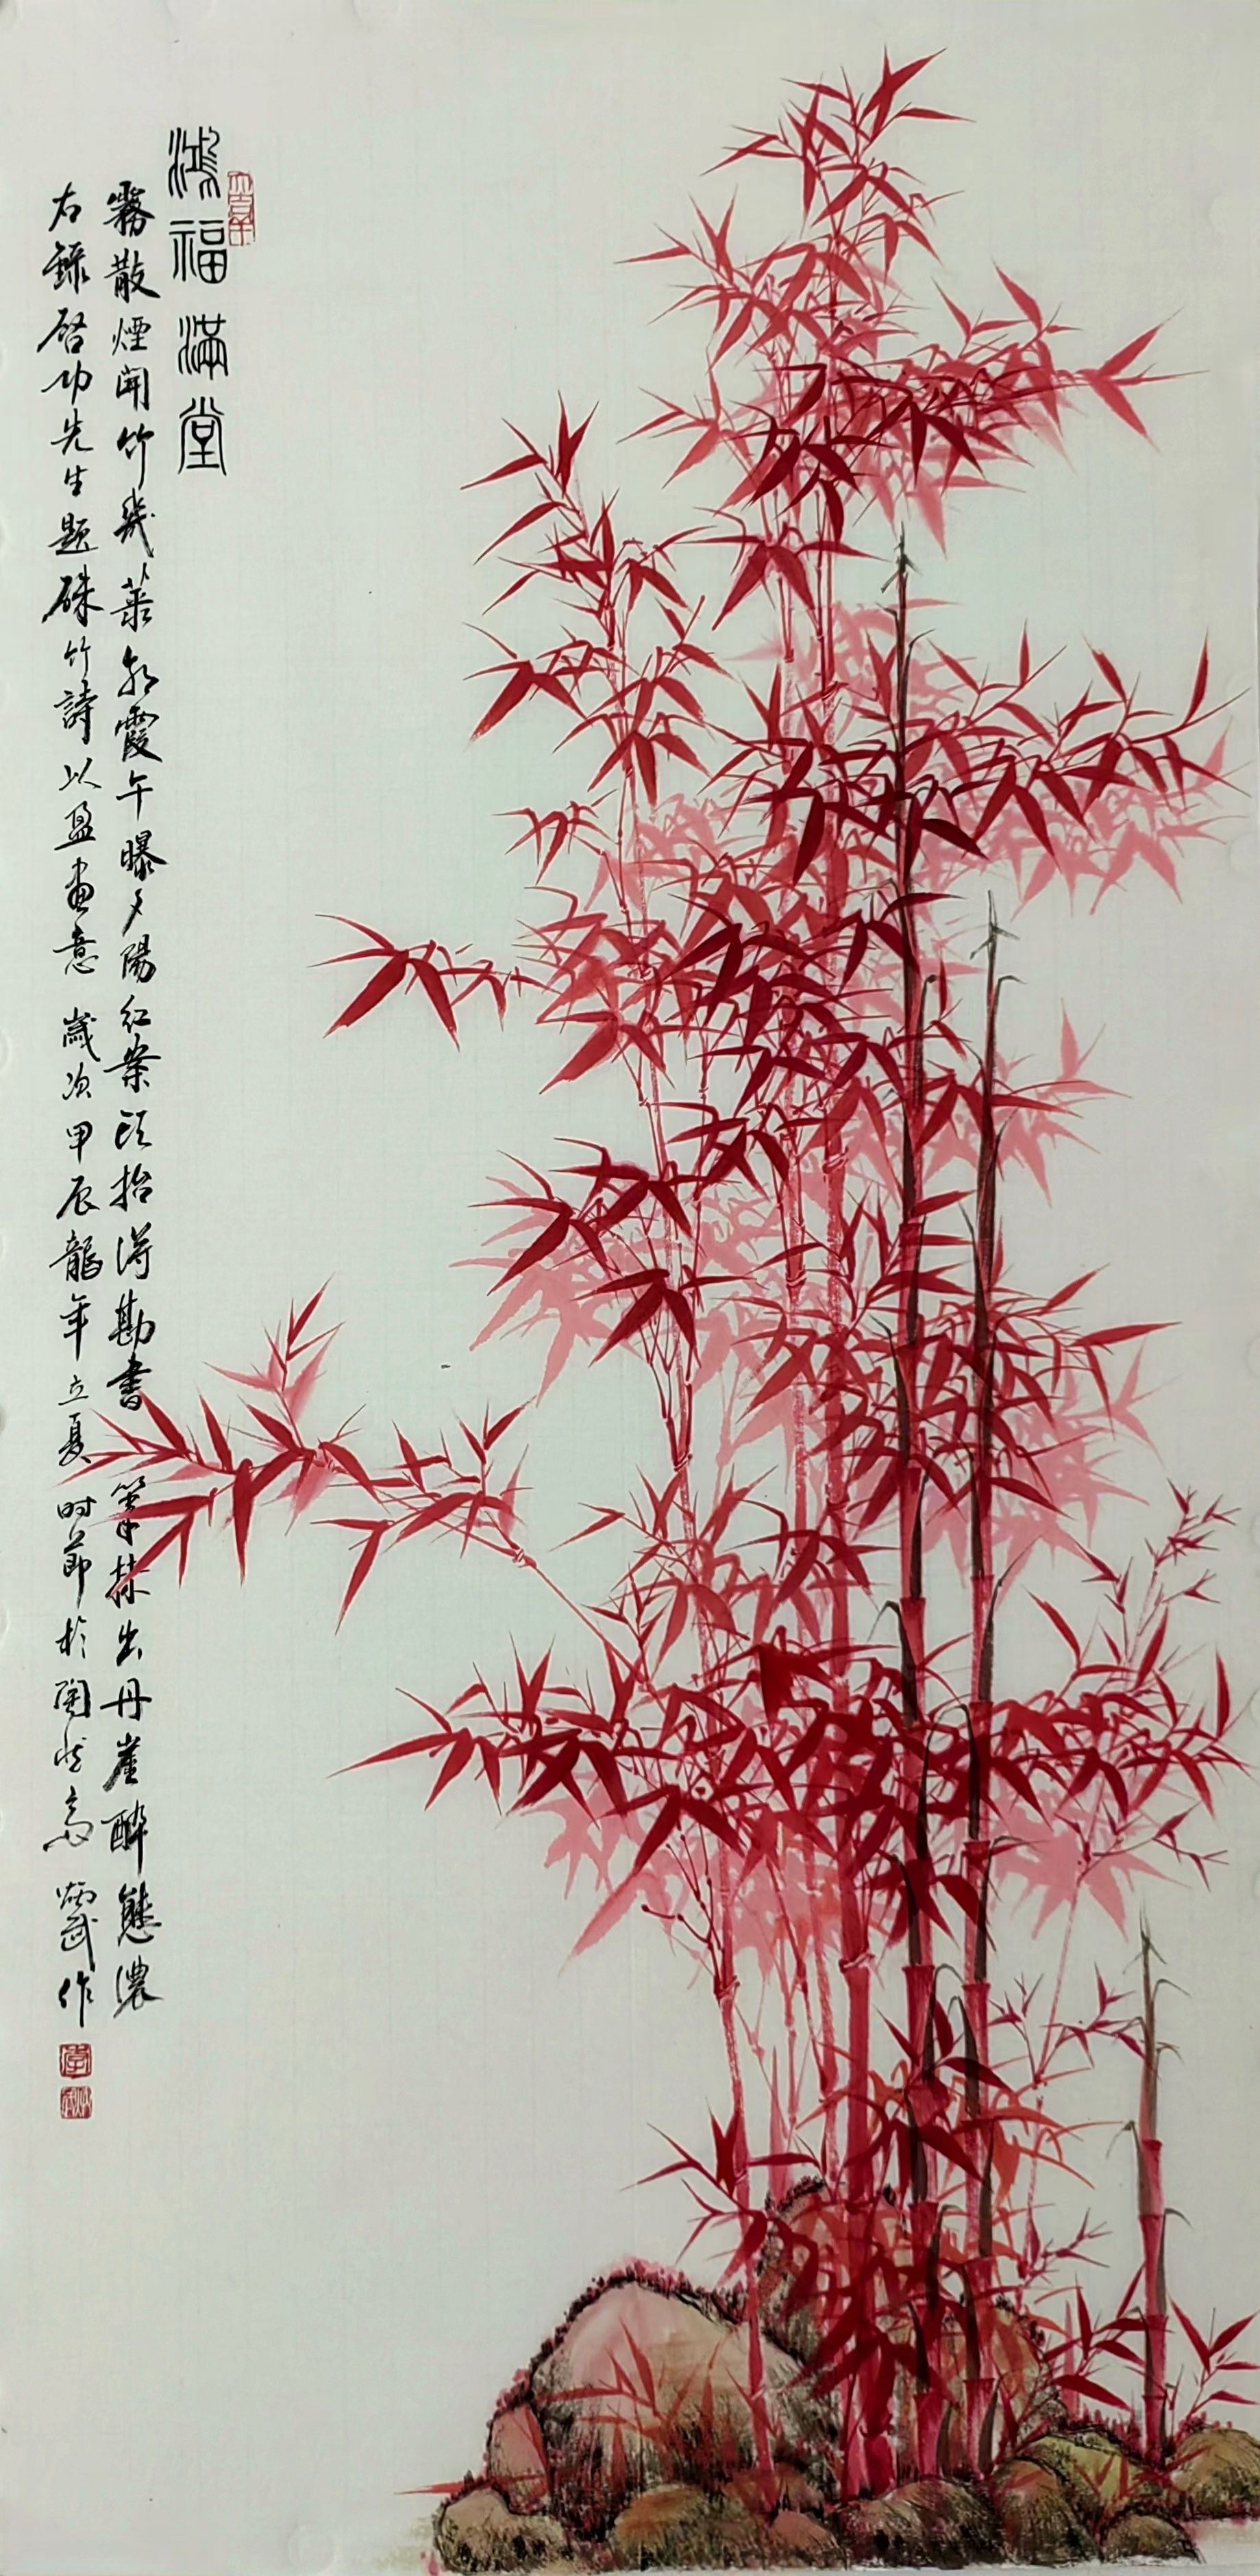 鴻福滿堂
霧散煙開竹幾叢朝霞午曝夕陽紅案頭拾得勘書筆抹出丹崖醉態濃
右錄啓功先生題硃竹詩以盈畫意 歲次甲辰龍年立夏時節於陶然齋 炳武作